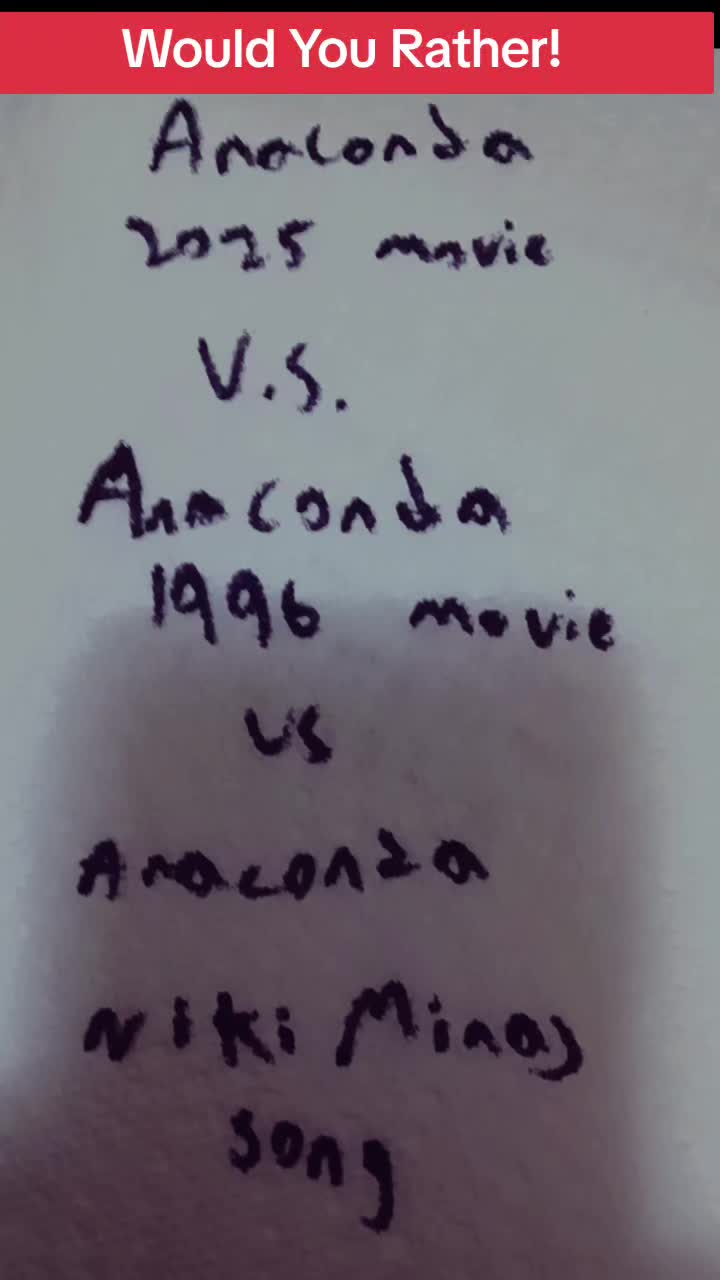 Would You Rather!
Anaconda
2025 movie
V.S.
Anaconda
1996 movie
vs
Anaconda
Niki Minaj
song